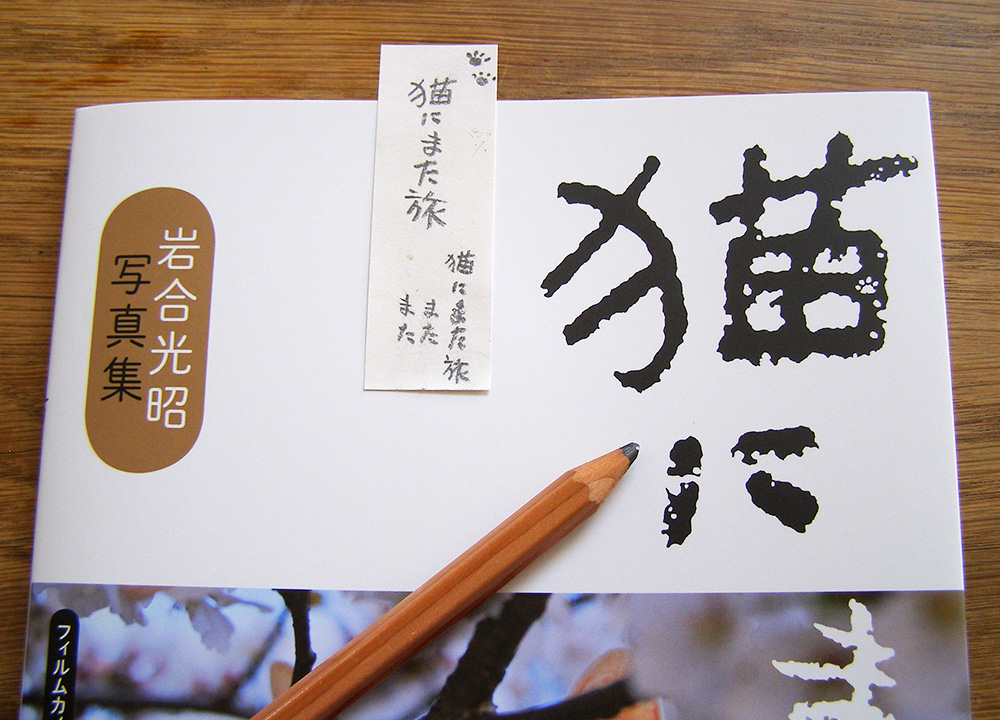 猫に
ま
岩合光昭
写真集
フィルムカ
猫にまた旅
猫にまた旅
また
また